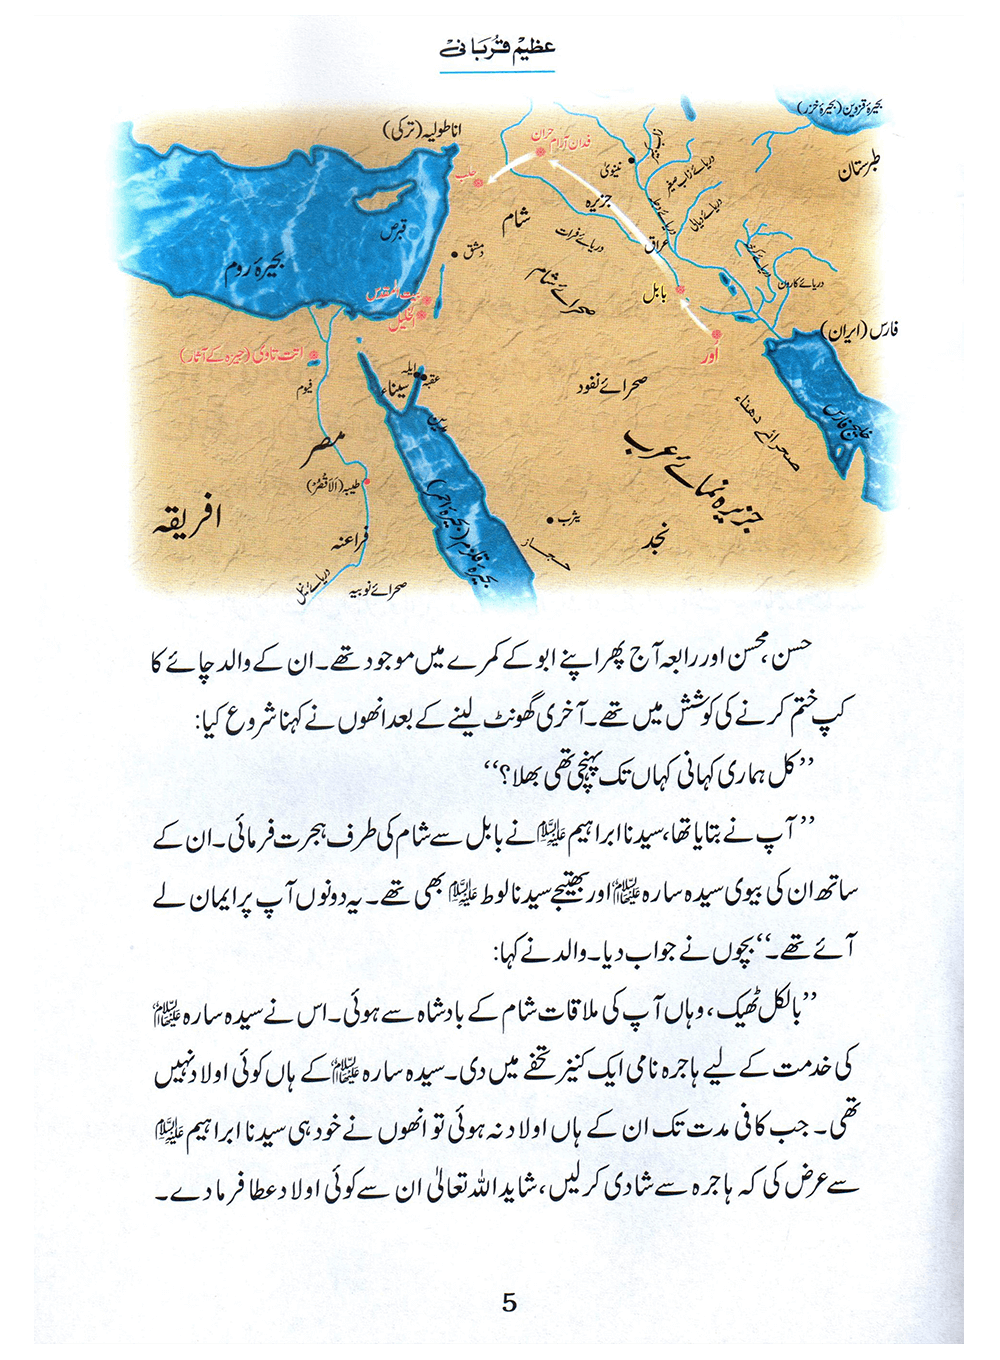 عظیم قربانی
بحیرۂ قزوین (بحیرۂ خزر)
اناطولیہ (ترکی)
طبرستان
حران
فدان آرام
نینویٰ
دریائے زاب صغیر
حلب
جزیرہ
دریائے دجلہ
دریائے دیالی
شام
قبرص
دریائے فرات
عراق
دمشق
بحیرۂ روم
صحرائے شام
بابل
دریائے کرخہ
دریائے کارون
بیت المقدس
الخلیل
اُور
فارس (ایران)
اتت تاوی (جیزہ کے آثار)
ایلہ
عقبہ
سیناء
فیوم
صحرائے نفود
صحرائے دھناء
خلیج فارس
مدین
مصر
جزیرہ نمائے عرب
طیبہ (الاقصر)
بحیرۂ قلزم (بحیرۂ احمر)
افریقہ
یثرب
نجد
فراعنہ
حجاز
دریائے نیل
صحرائے نوبیہ
حسن، محسن اور رابعہ آج پھر اپنے ابو کے کمرے میں موجود تھے۔ ان کے والد چائے کا
کپ ختم کرنے کی کوشش میں تھے۔ آخری گھونٹ لینے کے بعد انھوں نے کہنا شروع کیا:
’’کل ہماری کہانی کہاں تک پہنچی تھی بھلا؟‘‘
’’آپ نے بتایا تھا، سیدنا ابراہیم علیہ السلام نے بابل سے شام کی طرف ہجرت فرمائی۔ ان کے
ساتھ ان کی بیوی سیدہ سارہ علیہا السلام اور بھتیجے سیدنا لوط علیہ السلام بھی تھے۔ یہ دونوں آپ پر ایمان لے
آئے تھے۔‘‘ بچوں نے جواب دیا۔ والد نے کہا:
’’بالکل ٹھیک، وہاں آپ کی ملاقات شام کے بادشاہ سے ہوئی۔ اس نے سیدہ سارہ علیہا السلام
کی خدمت کے لیے ہاجرہ نامی ایک کنیز تحفے میں دی۔ سیدہ سارہ علیہا السلام کے ہاں کوئی اولاد نہیں
تھی۔ جب کافی مدت تک ان کے ہاں اولاد نہ ہوئی تو انھوں نے خود ہی سیدنا ابراہیم علیہ السلام
سے عرض کی کہ ہاجرہ سے شادی کر لیں، شاید اللہ تعالیٰ ان سے کوئی اولاد عطا فرما دے۔
5